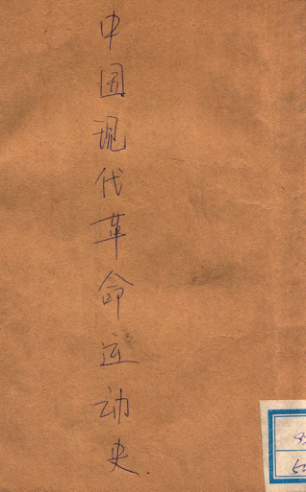 中国现代革命运动史.